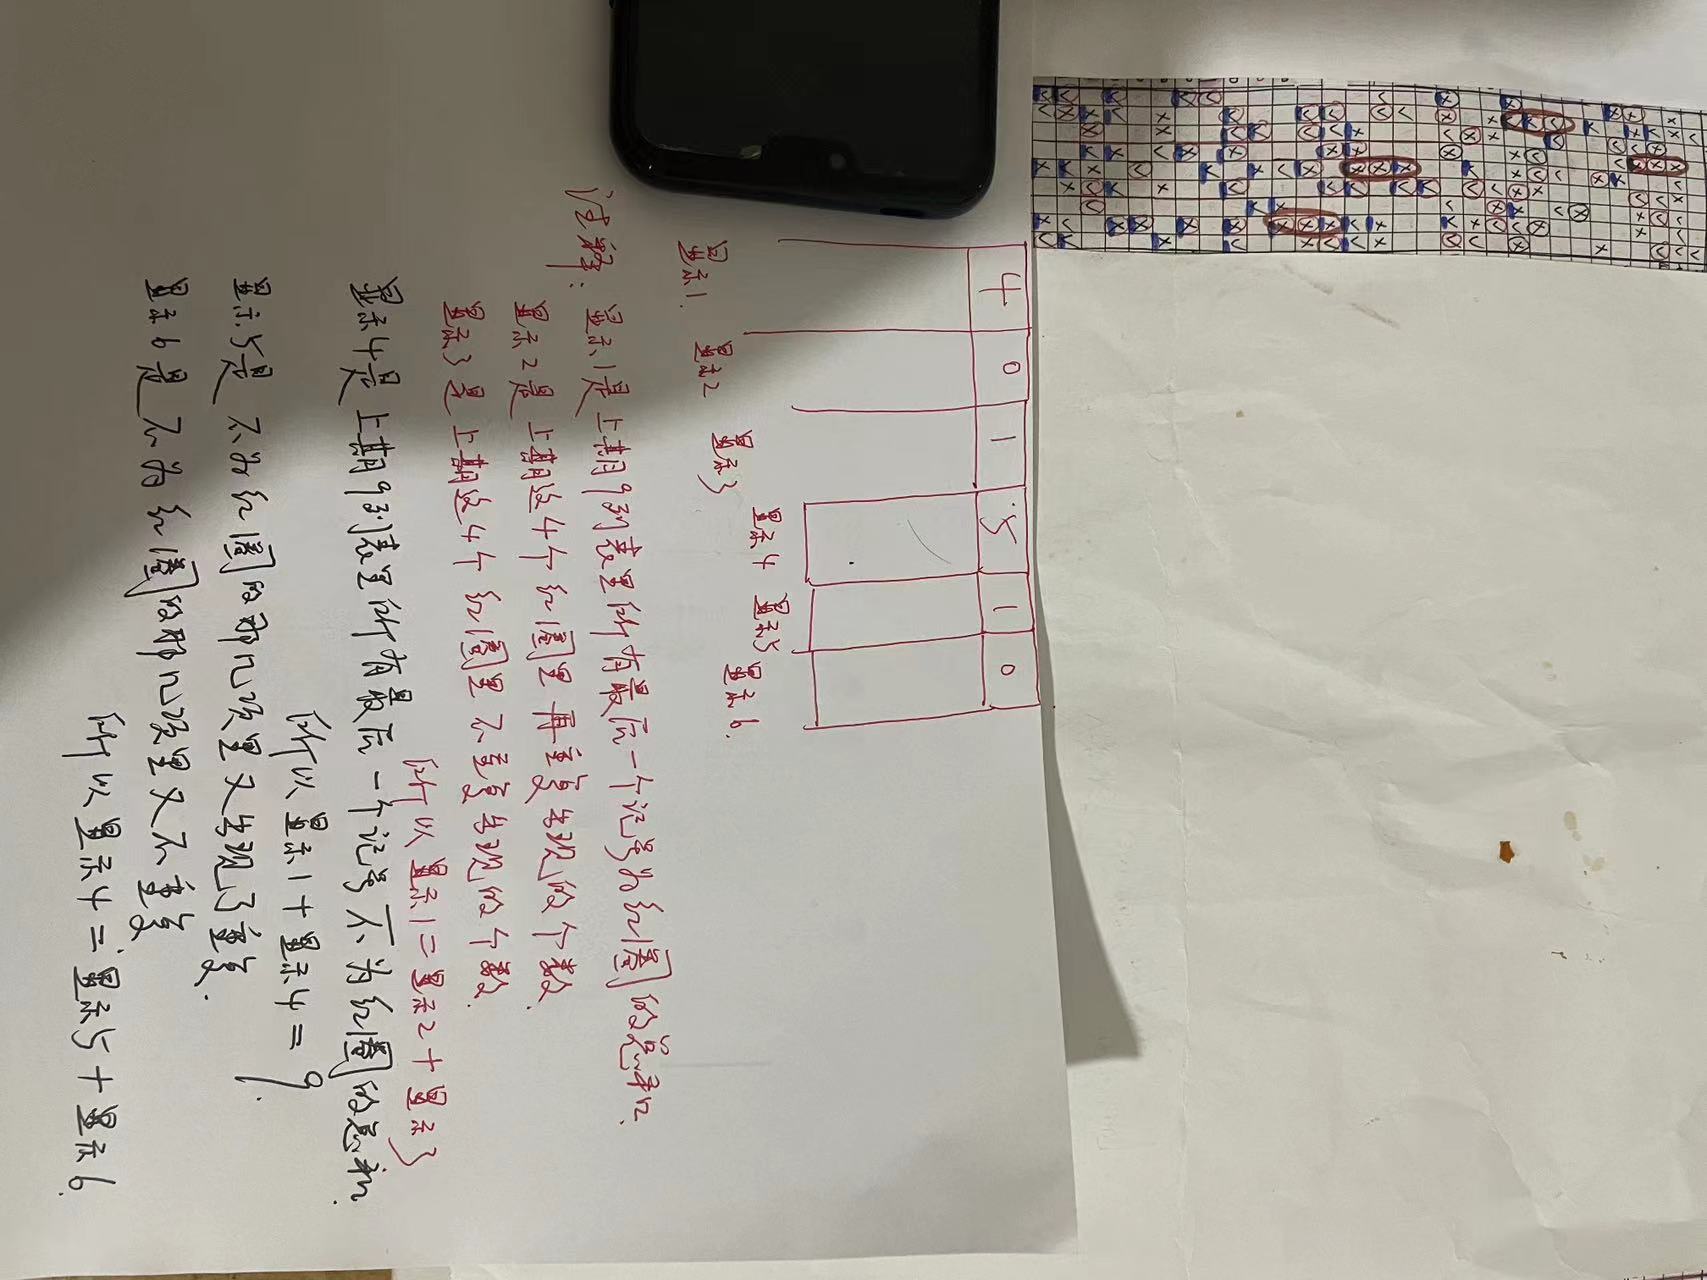 4 0 1 5 1 0
显示4 显示5
显示1. 显示2 显示3 显示6.
注释: 显示1是上期9列表里所有最后一个记号为红圈的总和.
显示2是上期这4个红圈里再重复出现的个数.
显示3是上期这4个红圈里不重复出现的个数.
所以显示1=显示2+显示3
显示4是上期9列表里所有最后一个记号不为红圈的总和.
所以显示1+显示4=9.
显示5是不为红圈的那几项里又出现了重复.
显示6是不为红圈的那几项里又不重复.
所以显示4=显示5+显示6.